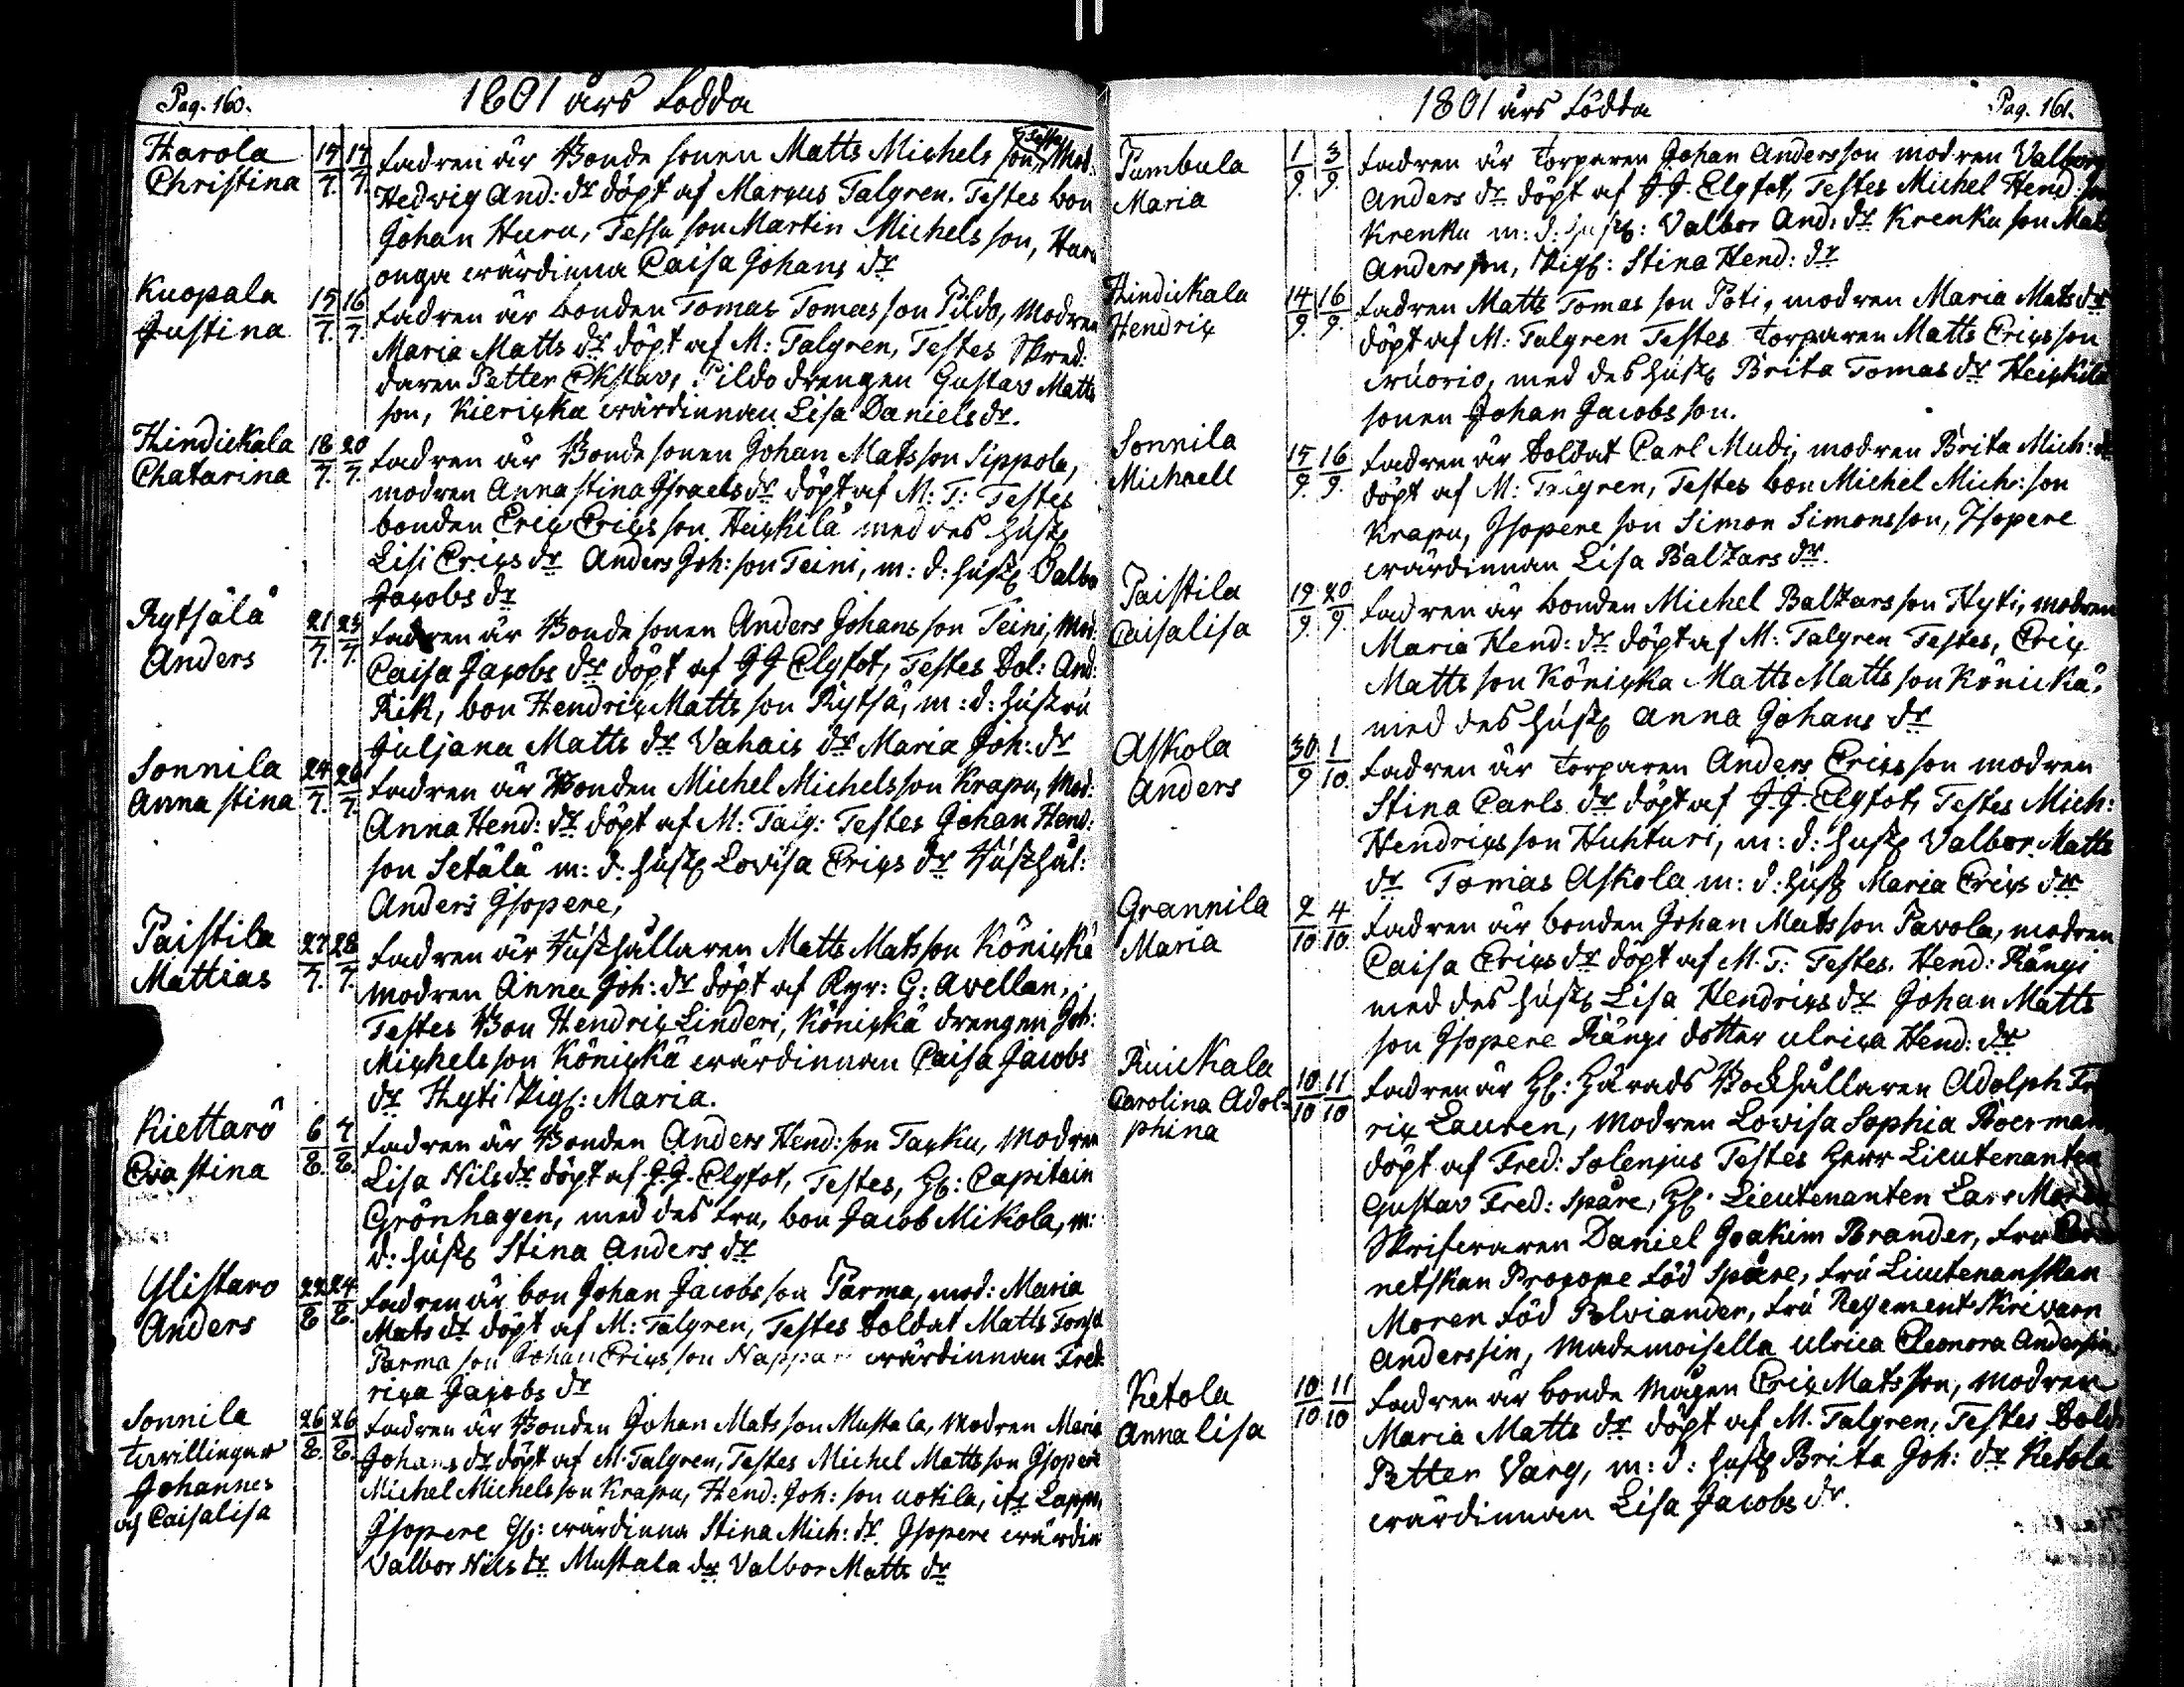 Pag. 160.
1801 års Födda
Harola
Christina
14/7. 17/7.
Fadren är Bonde sonen Matts Michels son, Tessa Mod:
Hedvig And: dr döpt af Marcus Talgren. Testes bon
Johan Huru, Tessu son Martin Michels son, Haru
onga wärdinna Caisa Johans dr
Kuopala
Justina
15/7. 16/7.
Fadren är bonden Tomas Tomas son Pildo, Modren
Maria Matts dr döpt af M: Talgren, Testes Skred:
daren Petter Ekstav, Pildo drengen Gustav Matts
son, Kiericka wärdinnan Lisa Daniels dr.
Hindickala
Chatarina
18/7. 20/7.
Fadren är Bonde sonen Johan Matsson Sippola,
modren Anna stina Israels dr döpt af M: T: Testes
bonden Eric Erics son Heickilä med des hust
Lisi Erics dr Anders Joh: son Teini, m: d: hust Valbo
Jacobs dr
Rytsälä
Anders
21/7. 23/7.
Fadren är Bonde sonen Anders Johans son Teini, Mod:
Caisa Jacobs dr döpt af J J Elgfot, Testes Sol: And:
Rik, bon Hendric Matts son Rytsä, m: d: hustru
Juljana Matts dr Vahais dr Maria Joh: dr
Sonnila
Anna stina
24/7. 26/7.
Fadren är Bonden Michel Michelsson Krapu, Mod:
Anna Hend: dr döpt af M: Talg: Testes Johan Hend:
son Setälä m: d: hust Lovisa Erics dr Rusthål:
Anders Isopere,
Paistila
Mattias
27/7. 28/7.
Fadren är Rusthållaren Matts Matsson Könickä
modren Anna Joh: dr döpt af Rgr: G: Avellan,
Testes Bon Hendric Linderi, Könickä drengen Joh:
Michels son Könickä wärdinnan Caisa Jacobs
dr Hyti Pig: Maria.
Kiettarö
Eva stina
6/8. 7/8.
Fadren är Bonden Anders Hend: son Tacku, Modren
Lisa Nils dr döpt af J. J. Elgfot, Testes, H: Capitain
Grönhagen, med des fru, bon Jacob Mikola, m:
d: hust Stina Anders dr
Ylistaro
Anders
22/8 24/8.
Fadren är bon Johan Jacobs son Parma, mod: Maria
Mats dr döpt af M: Talgren, Testes Soldat Matts Forst
Parma son Johan Erics son Nappar wärdinnan Fred
rica Jacobs dr
Sonnila
Twillingar
Johannes
och Caisalisa
26/8. 26/8.
Fadren är Bonden Johan Mats son Mustala, Modren Maria
Johans dr döpt af M. Talgren, Testes Michel Matts son Isopere
Michel Michels son Krapu, Hend: Joh: son uotila,
Isopere wärdinna Stina Mich: dr. Isopere wärdin
Valbor Nils dr Mustala dr Valbor Matts dr
1801 års Födda
Pag. 161.
Pumbula
Maria
1/9. 3/9.
Fadren är Torparen Johan Andersson modren Valborg
Anders dr döpt af J. J. Elgfot, Testes Michel Hend: son
Krenku m: d: hust: Valbor And: dr Krenku son Mats
Anders son, Pig: Stina Hend: dr
Hindickala
Hendric
14/9. 16/9.
Fadren Matts Tomas son Poti, modren Maria Mats dr
döpt af M: Talgren Testes Torparen Matts Ericsson
wuorio, med des hust Brita Tomas dr Heickilä
sonen Johan Jacobs son.
Sonnila
Michaell
15/9. 16/9.
Fadren är Soldat Carl Mudi, modren Brita Mich: dr
döpt af M: Talgren, Testes bon Michel Mich: son
Krapu, Isopere son Simon Simonsson, Isopere
wärdinnan Lisa Baltzars dr.
Paistila
Caisalisa
19/9. 20/9.
Fadren är bonden Michel Baltzars son Hyti, modren
Maria Hend: dr döpt af M: Talgren Testes, Eric
Matts son Könicka Matts Matts son Könickä,
med des hust Anna Johans dr
Askola
Anders
30/9 1/10.
Fadren är Torparen Anders Erics son modren
Stina Carls dr döpt af J. J. Elgfot, Testes Mich:
Hendrics son Huhturi, m: d: hust Valbor Matts
dr Tomas Askola m: d: hust Maria Erics dr
Grannila
Maria
2/10 4/10
Fadren är bonden Johan Matsson Pavola, modren
Caisa Erics dr döpt af M. T: Testes. Hend: Rängi
med des hust Lisa Hendrics dr Johan Matts
son Isopere Rängi dotter ulrica Hend: dr
Ruickala
Carolina Adol-
phina
10/10 11/10
Fadren är H: Härads Bockhållaren Adolph Fred
ric Lauren, Modren Lovisa Sophia Boerman
döpt af Fred: Solenjus Testes Herr Lieutenanten
Gustav Fred: Spåre, H: Lieutenanten Lars Moren
Skrifwaren Daniel Joakim Brander, Fru Cor
netskan Procope Född Spåre, Fru Lieutenanskan
Moren Född Polviander, Fru Regements Skrivarn
Anderssin, Mademoisella ulrica Eleonora Anderssin
Ketola
Anna Lisa
10/10 11/10
Fadren är bonde Mågen Eric Matsson, Modren
Maria Matts dr döpt af M. Talgren, Testes Sold:
Petter Varg, m: d: hust Brita Joh: dr Ketola
wärdinnan Lisa Jacobs dr.